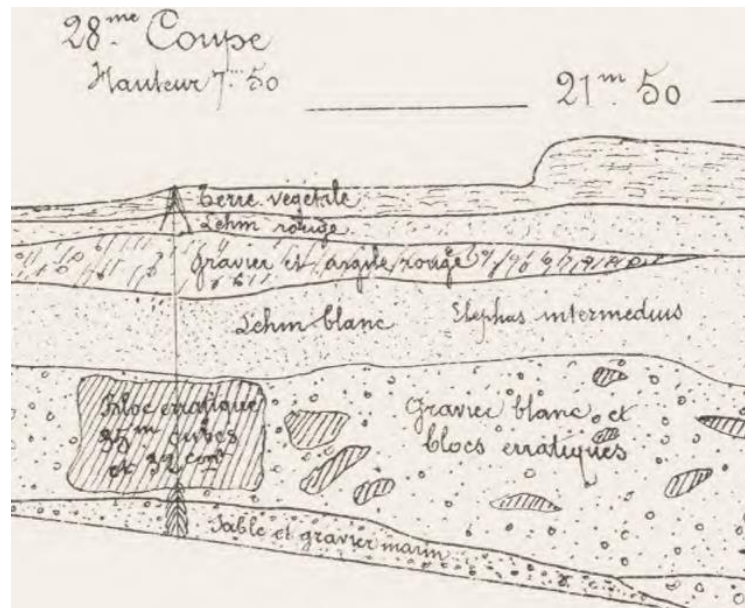 28.me Coupe
Hauteur 7m.50
21m.50
Terre vegetale
Lehm rouge
Gravier et argile rouge
Lehm blanc
Elephas intermedius
Bloc erratique
35m cubes
et 32 cent
Gravier blanc et
blocs erratiques
Sable et gravier marin